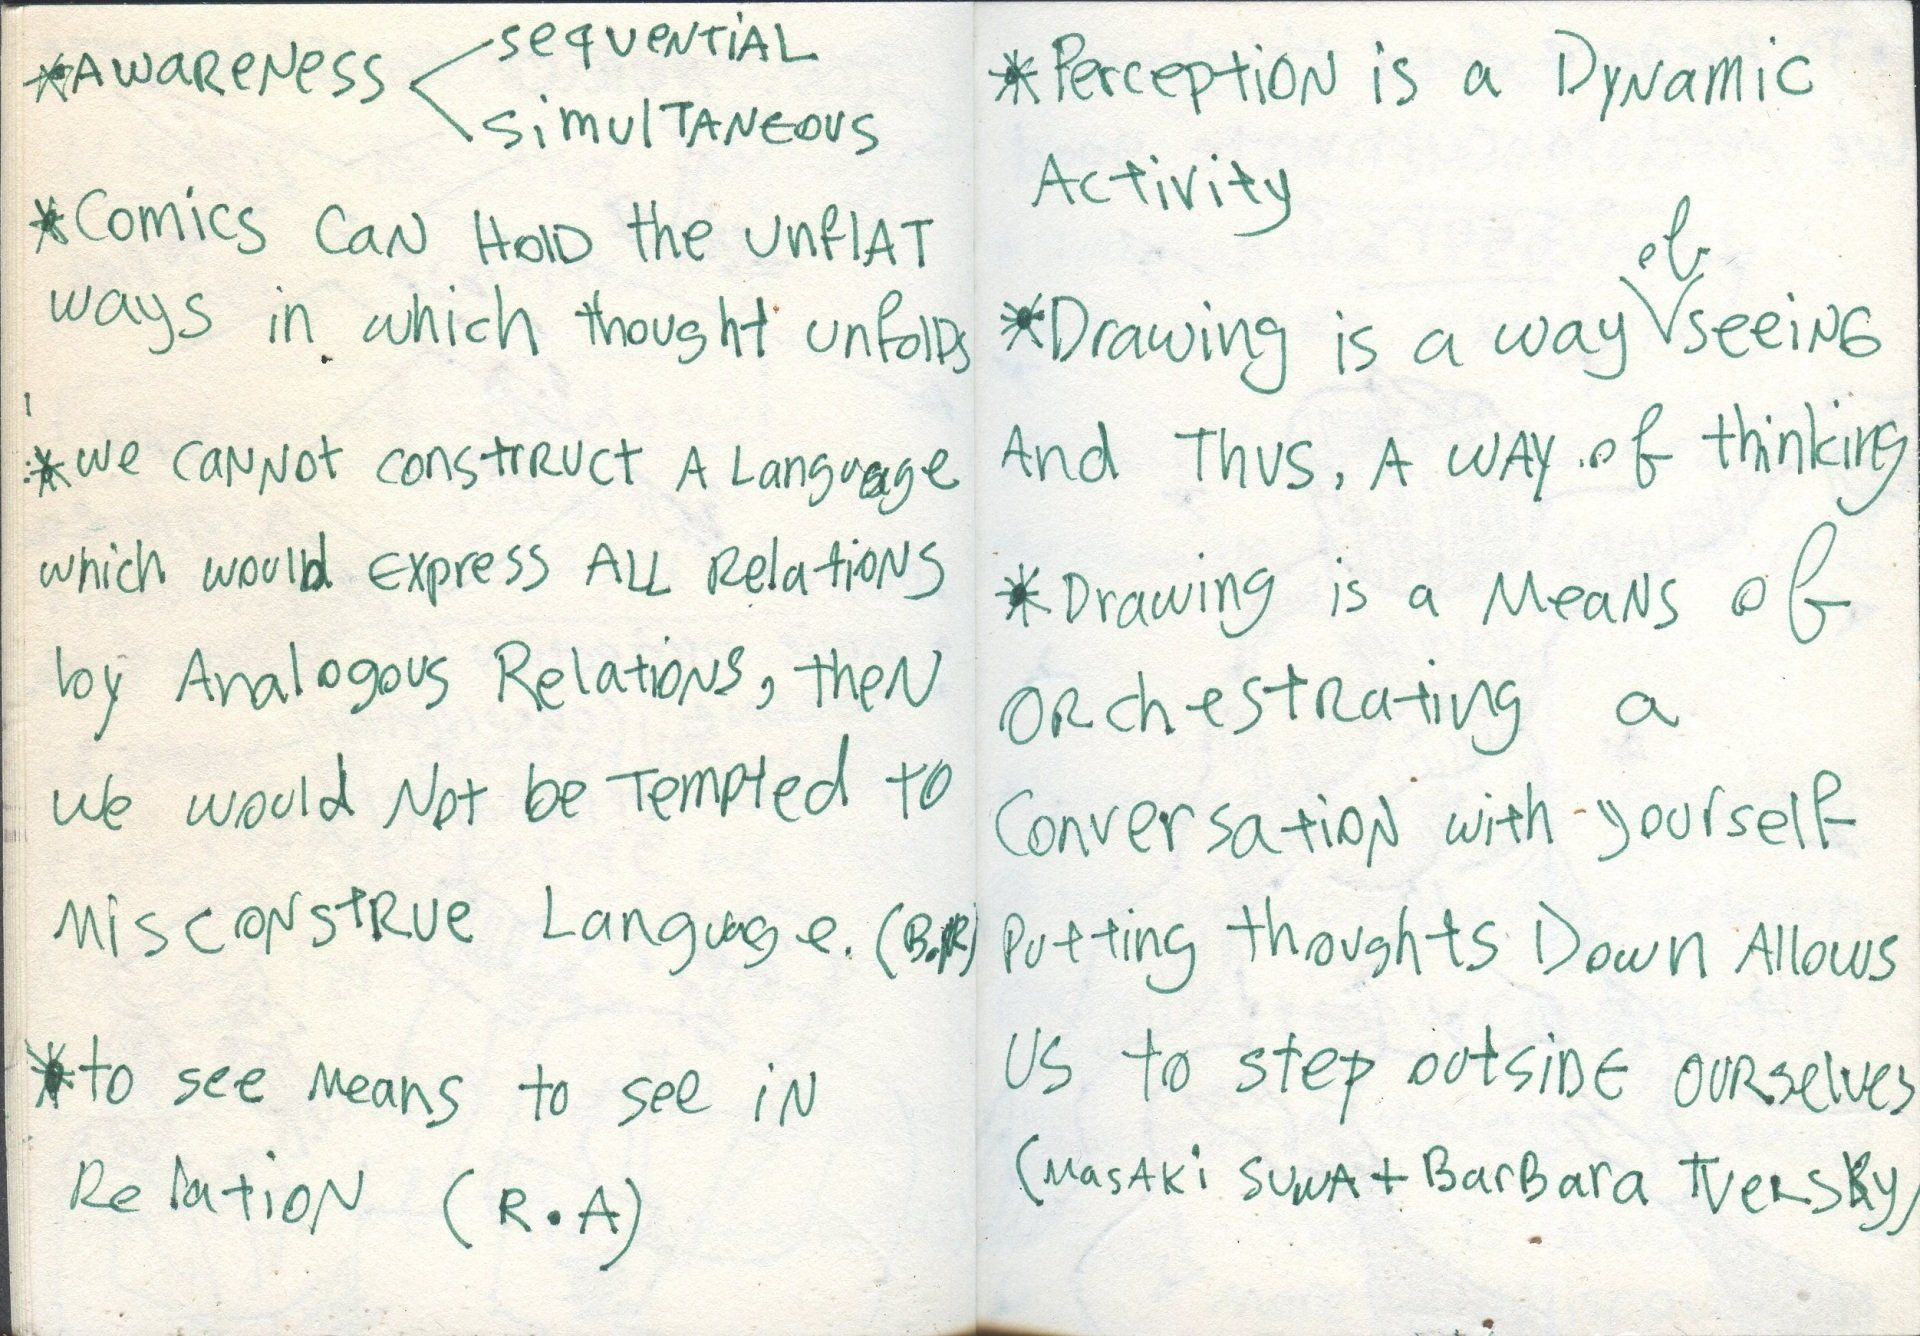 *Awareness < sequential
simultaneous
*Comics can hold the unflat
ways in which thought unfolds
*we cannot construct a language
which would express all relations
by Analogous Relations, then
we would not be tempted to
misconstrue Language. (B.R)
*to see means to see in
Relation (R.A)
*Perception is a Dynamic
Activity
*Drawing is a way of seeing
And Thus, A way of thinking
*Drawing is a Means of
orchestrating a
Conversation with yourself
Putting thoughts Down Allows
us to step outside ourselves
(Masaki Suwa + Barbara Tversky)